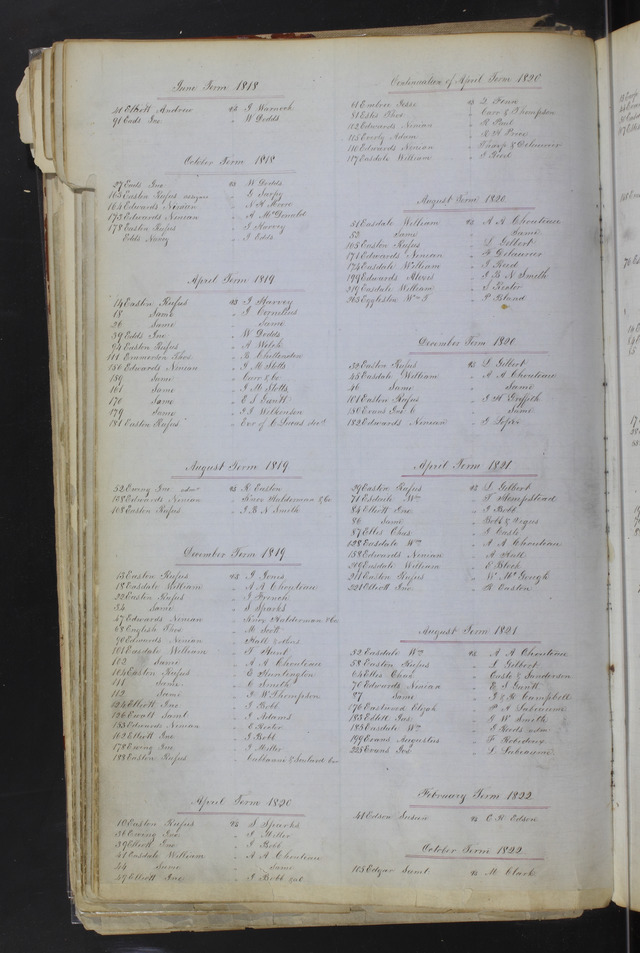 June Term 1818
41 Elliott Andrew vs J Warnock
91 Eads Jno " W Dodds
October Term 1818
27 Eads Jno vs W Dodds
163 Easton Rufus assignee " G Sarpy
164 Edwards Ninian " N H Moore
173 Edwards Ninian " A McDonald
178 Easton Rufus " J Harvey
Edds Nancy " J Edds
April Term 1819
14 Easton Rufus vs J Harvey
18 Same " J Cornelius
26 Same " Same
39 Edds Jno " W Dodds
94 Easton Rufus " A Welch
111 Emmerson Thos " B Chittenden
156 Edwards Ninian " J M Stotts
159 Same " Carr & Co
161 Same " J M Stotts
170 Same " E S Gantt
179 Same " J J Wilkinson
181 Easton Rufus " Exr of C Lucas decd
August Term 1819
52 Ewing Jno adm vs R Easton
108 Edwards Ninian " Knox Halderman & Co
168 Easton Rufus " J B N Smith
December Term 1819
13 Easton Rufus vs J Jones
18 Easdale William " A A Chouteau
22 Easton Rufus " J French
34 Same " S Sparks
47 Edwards Ninian " Knox Halderman & Co
68 English Thos " M Scott
90 Edwards Ninian " Hall & others
101 Easdale William " T Hunt
102 Same " A A Chouteau
104 Easton Rufus " E Huntington
111 Same " C Smith
112 Same " J W Thompson
124 Elliott Jno " J Bobb
126 Ewell Saml " J Adams
153 Edwards Ninian " C Hester
162 Elliott Jno " J Bobb
178 Ewing Jno " J Miller
188 Easton Rufus
April Term 1820
10 Easton Rufus vs S Sparks
36 Ewing Jno " J Miller
39 Elliott Jno " J Bobb
41 Easdale William " A A Chouteau
44 Same " Same
49 Elliott Jno " J Bobb
Continuation of April Term 1820
61 Embree Jesse vs D Fenn
81 Estes Thos " Carr & Thompson
112 Edwards Ninian " R Paul
115 Everly Adam " R H Price
116 Edwards Ninian " Tharp & Delaurier
117 Easdale William " J Reed
August Term 1820
51 Easdale William vs A A Chouteau
53 Same " Same
165 Easton Rufus " L Gilbert
171 Edwards Ninian " F Delaurier
174 Easdale William " J Reed
199 Edwards Alexis " J B N Smith
219 Easdale William " S Rector
263 Eggleston Wm T " P Bland
December Term 1820
32 Easton Rufus vs L Gilbert
45 Easdale William " A A Chouteau
46 Same " Same
101 Easton Rufus " J H Griffith
150 Evans Jno C " Same
182 Edwards Ninian
April Term 1821
29 Easton Rufus vs L Gilbert
71 Esdale Wm " S Hempstead
84 Elliott Jno " J Bobb
86 Same " Bobb & Dozus
87 Ellis Chas " S Easle
128 Easdale Wm " A A Chouteau
158 Edwards Ninian " A Hull
209 Easdale William " E Block
211 Easton Rufus " W McGough
221 Elliott Jno " R Easton
August Term 1821
52 Easdale Wm vs A A Chouteau
58 Easton Rufus " L Gilbert
64 Ellis Chas " Easle & Sanderson
70 Edwards Ninian " E S Gantt
87 Same " J & R Campbell
176 Eastwood Elijah " P A Labeaume
183 Elliott Jas " J W Smith
185 Easdale Wm " J Reeds adm
199 Evans Augustus
225 Evans Jno " L Labeaume
February Term 1822
41 Edson Susan vs C H Edson
October Term 1822
105 Edgar Saml vs M Clark